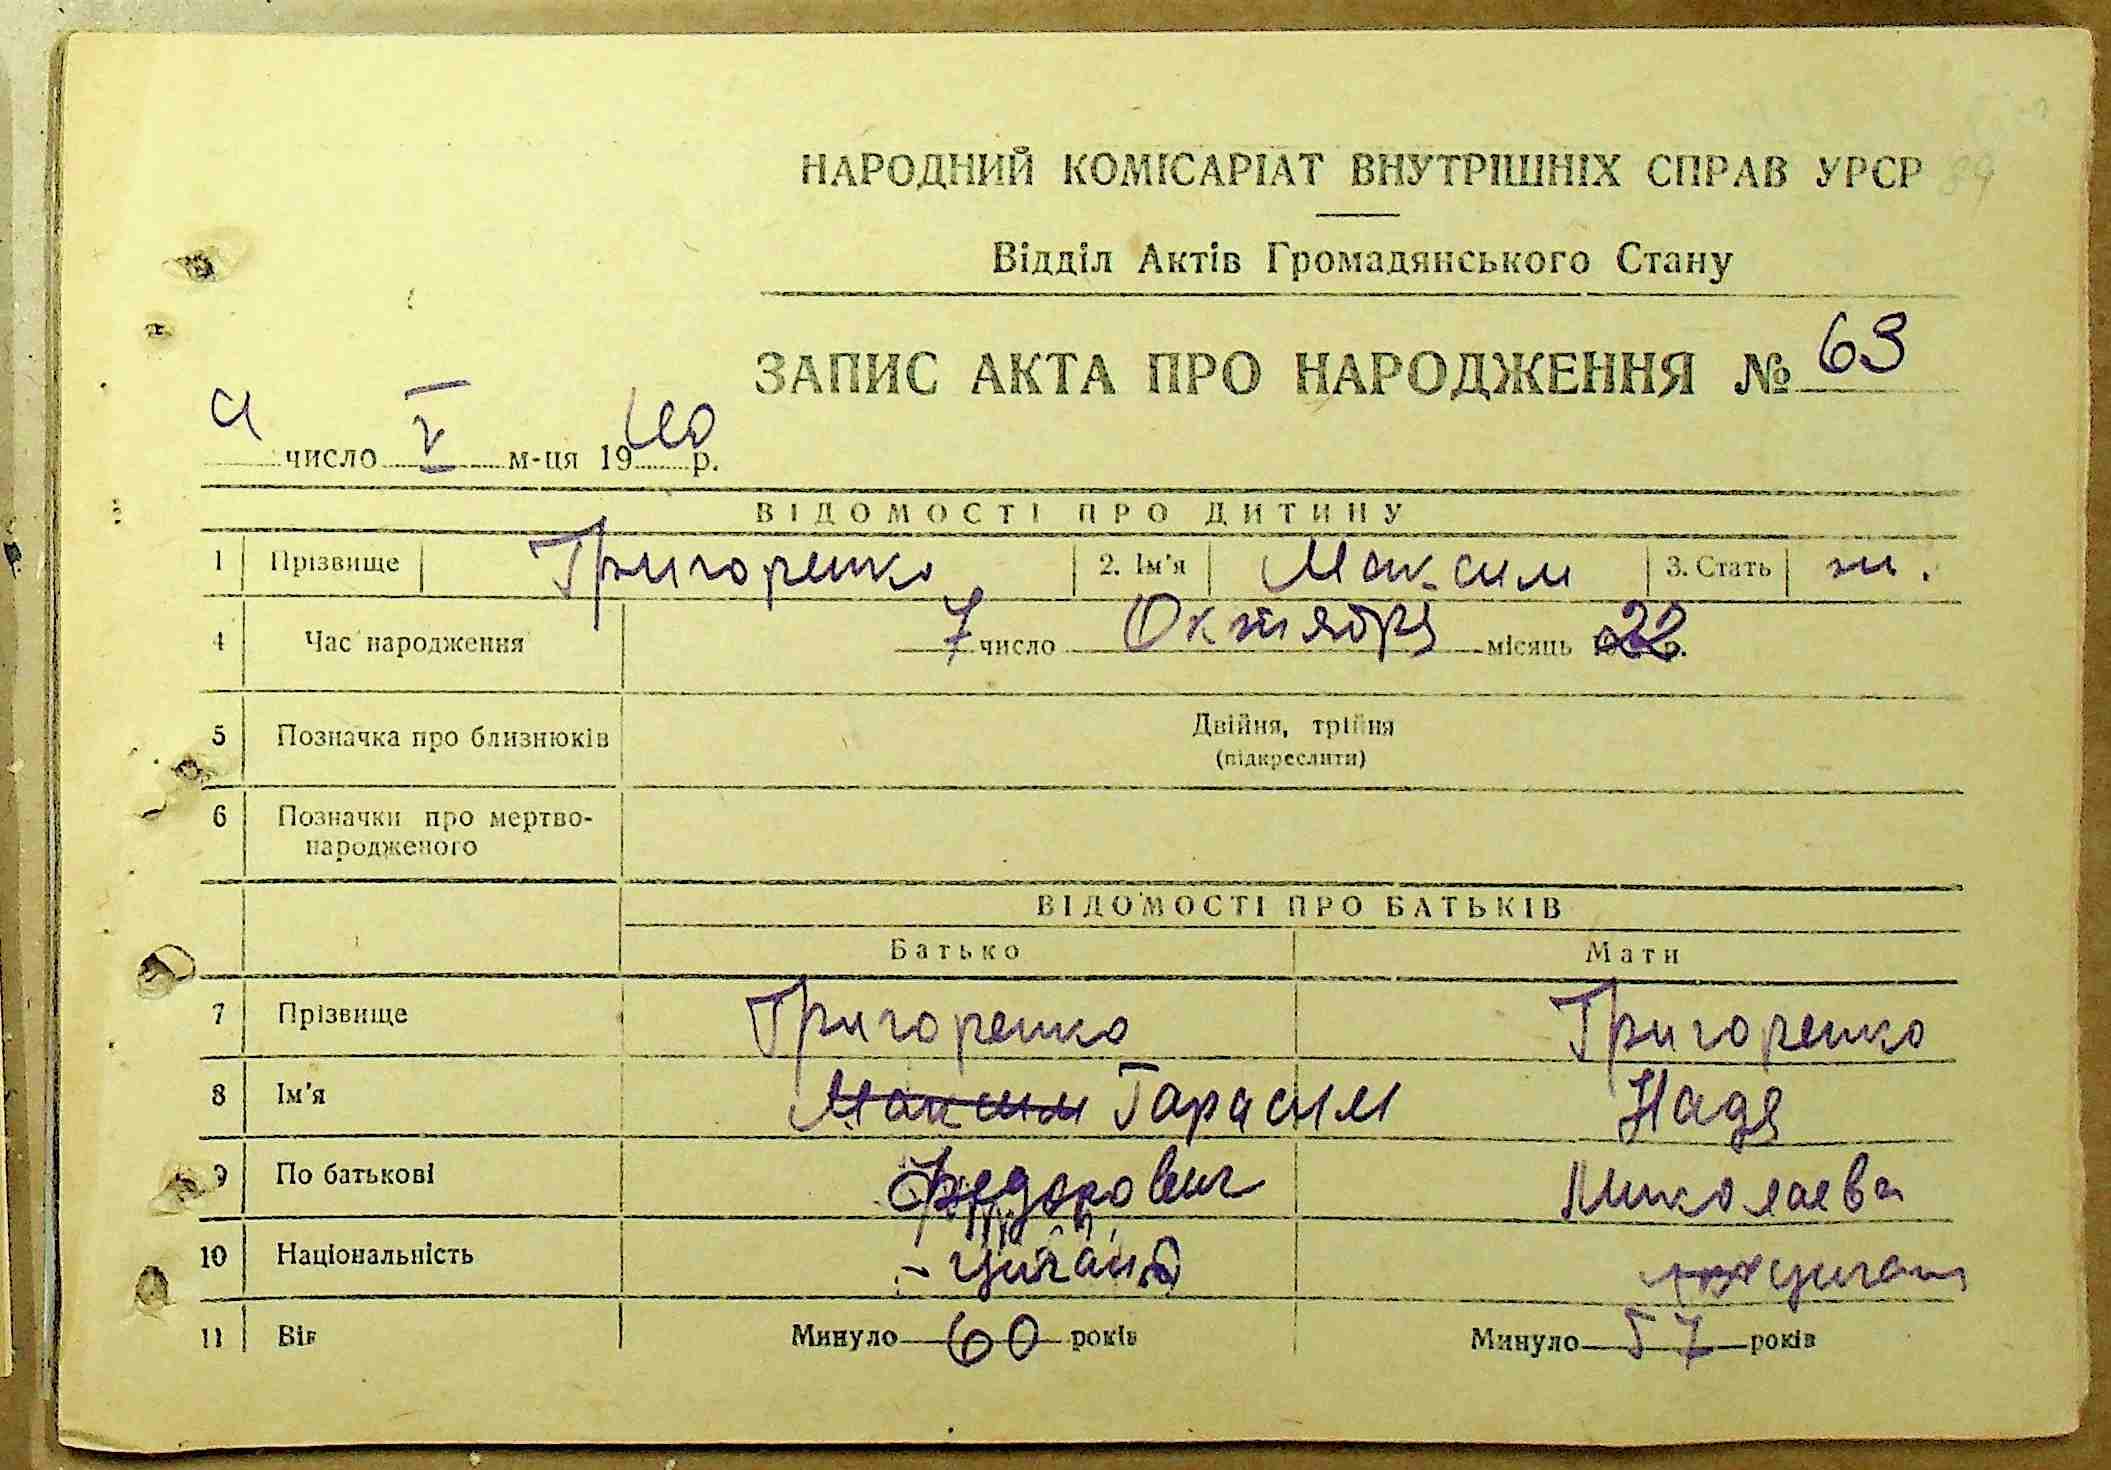 НАРОДНИЙ КОМІСАРІАТ ВНУТРІШНІХ СПРАВ УРСР 89
Відділ Актів Громадянського Стану
ЗАПИС АКТА ПРО НАРОДЖЕННЯ № 63
число V м-ця 1940 р.
ВІДОМОСТІ ПРО ДИТИНУ
1 Прізвище Григоренко 2. Ім'я Максим 3. Стать
4 Час народження 7 число Октября місяць 22
5 Позначка про близнюків Двійня, трійня
(підкреслити)
6 Позначки про мертво-
народженого
ВІДОМОСТІ ПРО БАТЬКІВ
Батько Мати
7 Прізвище Григоренко Григоренко
8 Ім'я Максим Гарасим Надя
9 По батькові Федорович Миколаева
10 Національність циган циган
11 Вік Минуло 60 років Минуло 57 років